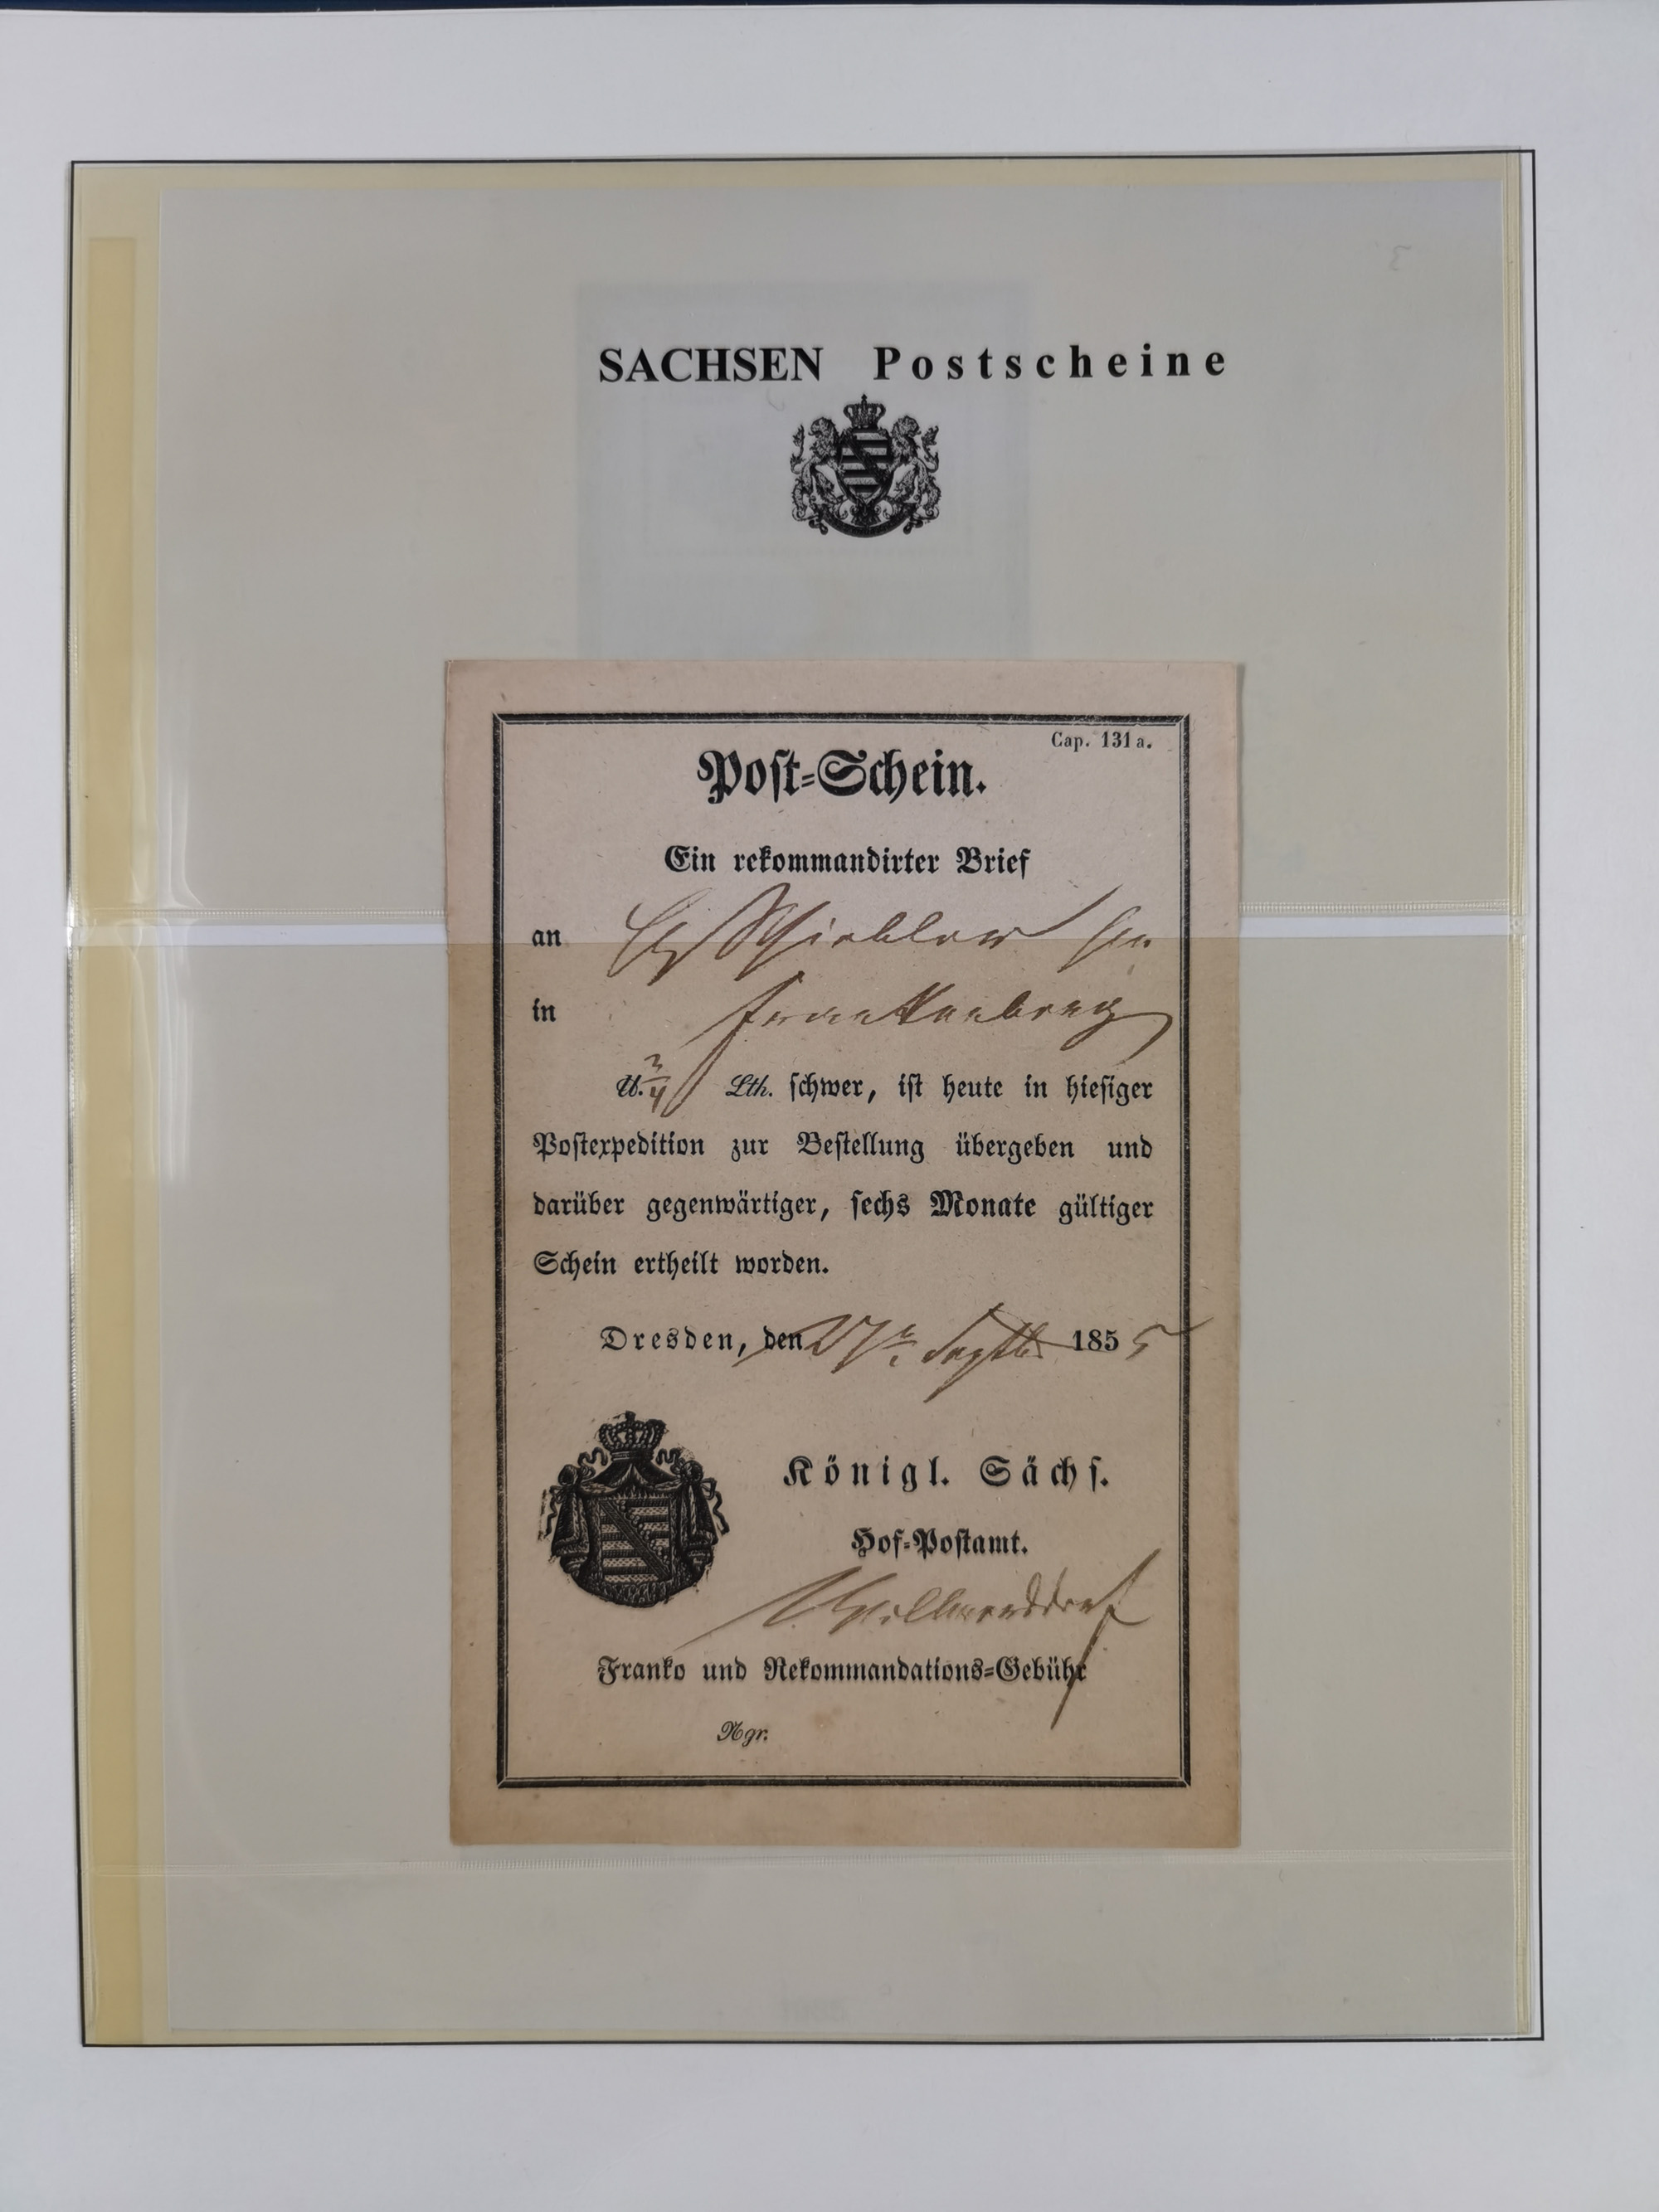 SACHSEN Postscheine
Cap. 131 a.
Post-Schein.
Ein rekommandirter Brief
an
in Frankenberg
℔. 3/4 Lth. schwer, ist heute in hiesiger
Postexpedition zur Bestellung übergeben und
darüber gegenwärtiger, sechs Monate gültiger
Schein ertheilt worden.
Dresden, den 27 Septbr 1855
Königl. Sächs.
Hof-Postamt.
Franko und Rekommandations-Gebühr
Ngr.